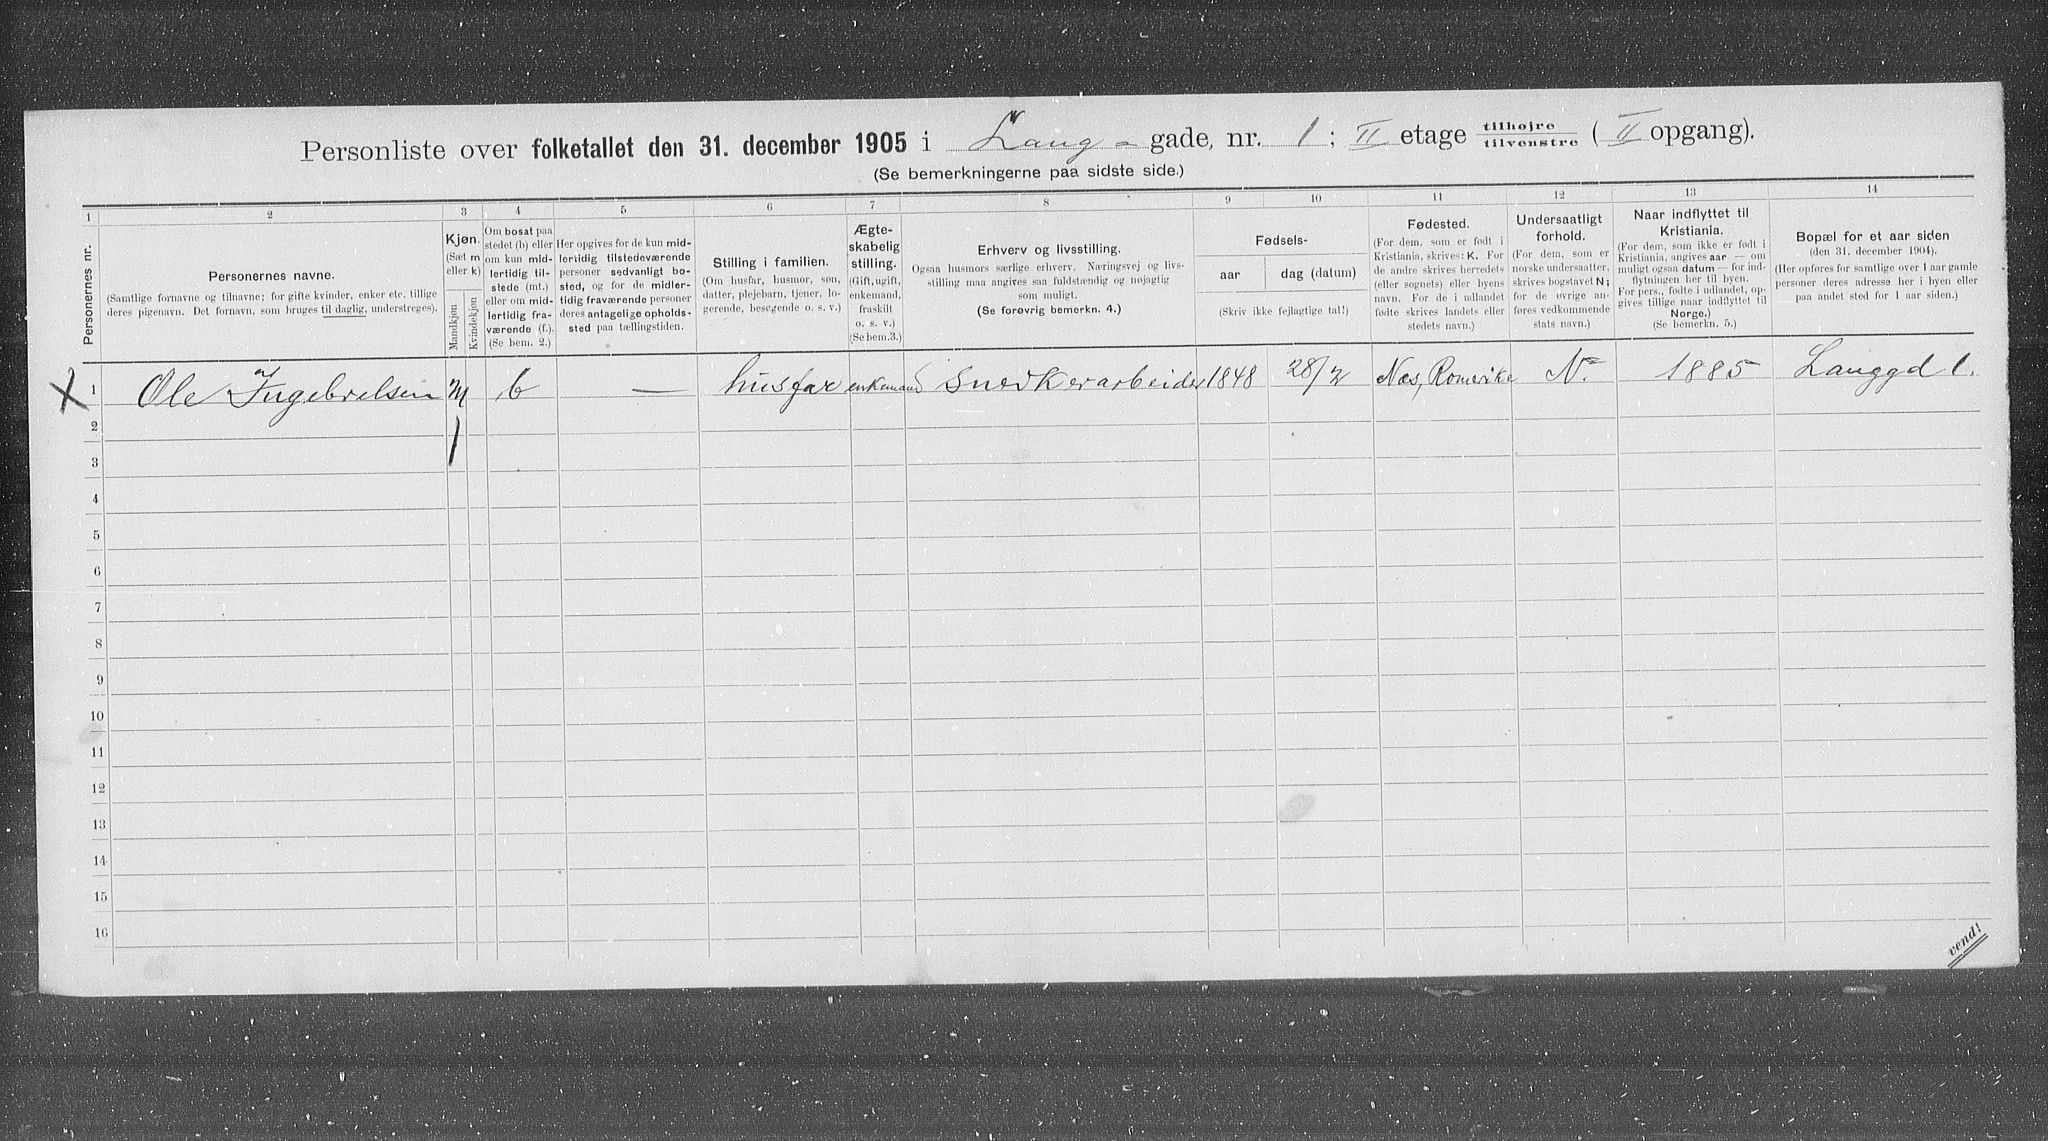 Personliste over folketallet den 31. december 1905 i Lang - gade, nr. 1 ; II etage tilhøjre tilvenstre ( II opgang).
(Se bemerkningerne paa sidste side.)
1 2 3 4 5 6 7 8 9 10 11 12 13 14
Personernes nr.
Personernes navne.
(Samtlige fornavne og tilnavne; for gifte kvinder, enker etc. tillige
deres pigenavn. Det fornavn, som bruges til daglig, understreges).
Kjøn.
(Sæt m
eller k)
Mandkjøn
Kvindekjøn
Om bosat paa
stedet (b) eller
om kun mid-
lertidig til-
stede (mt.)
eller om mid-
lertidig fra-
værende (f.).
(Se bem. 2.)
Her opgives for de kun mid-
lertidig tilstedeværende
personer sedvanligt bo-
sted, og for de midler-
tidig fraværende personer
deres antagelige opholds-
sted paa tællingstiden.
Stilling i familien.
(Om husfar, husmor, søn,
datter, plejebarn, tjener, lo-
gerende, besøgende o. s. v.)
Ægte-
skabelig
stilling.
(Gift, ugift,
enkemand,
fraskilt
o. s. v.)
(Se bem. 3.)
Erhverv og livsstilling.
Ogsaa husmors særlige erhverv. Næringsvej og livs-
stilling maa angives saa fuldstændig og nøjagtig
som muligt.
(Se forøvrig bemerkn. 4.)
Fødsels-
aar dag (datum)
(Skriv ikke fejlagtige tal!)
Fødested.
(For dem, som er født i
Kristiania, skrives: K. For
de andre skrives herredets
(eller sognets) eller byens
navn. For de i udlandet
fødte skrives landets eller
stedets navn.)
Undersaatligt
forhold.
(For dem, som er
norske undersaatter,
skrives bogstavet N;
for de øvrige an-
føres vedkommende
stats navn.)
Naar indflyttet til
Kristiania.
(For dem, som ikke er født i
Kristiania, angives aar — om
muligt ogsaa datum — for ind-
flytningen her til byen.
For pers., fødte i udlandet, op-
gives tillige naar indflyttet til
Norge.)
(Se bemerkn. 5.)
Bopæl for et aar siden
(den 31. december 1904).
(Her opføres for samtlige over 1 aar gamle
personer deres adresse her i byen eller
paa andet sted for 1 aar siden.)
X 1 Ole Ingebrelsen m b — husfar enkemand Snedkerarbeider 1848 28/2 Næs, Romerike N. 1885 Langgd 1.
2 1
3
4
5
6
7
8
9
10
11
12
13
14
15
16
vend!